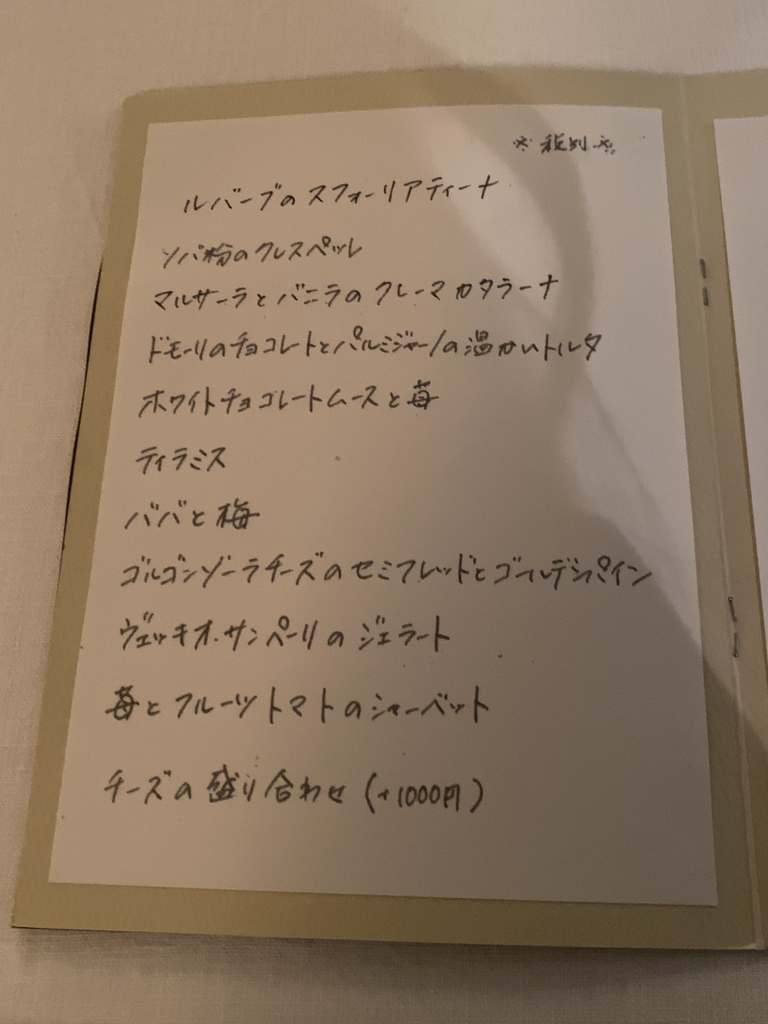 ※税別※
ルバーブのスフォーリアティーナ
ソバ粉のクレスペッレ
マルサーラとバニラのクレーマカタラーナ
ドモーリのチョコレートとパルミジャーノの温かいトルタ
ホワイトチョコレートムースと苺
ティラミス
ババと梅
ゴルゴンゾーラチーズのセミフレッドとゴールデンパイン
ヴェッキオ・サンペーリのジェラート
苺とフルーツトマトのシャーベット
チーズの盛り合わせ (+1000円)